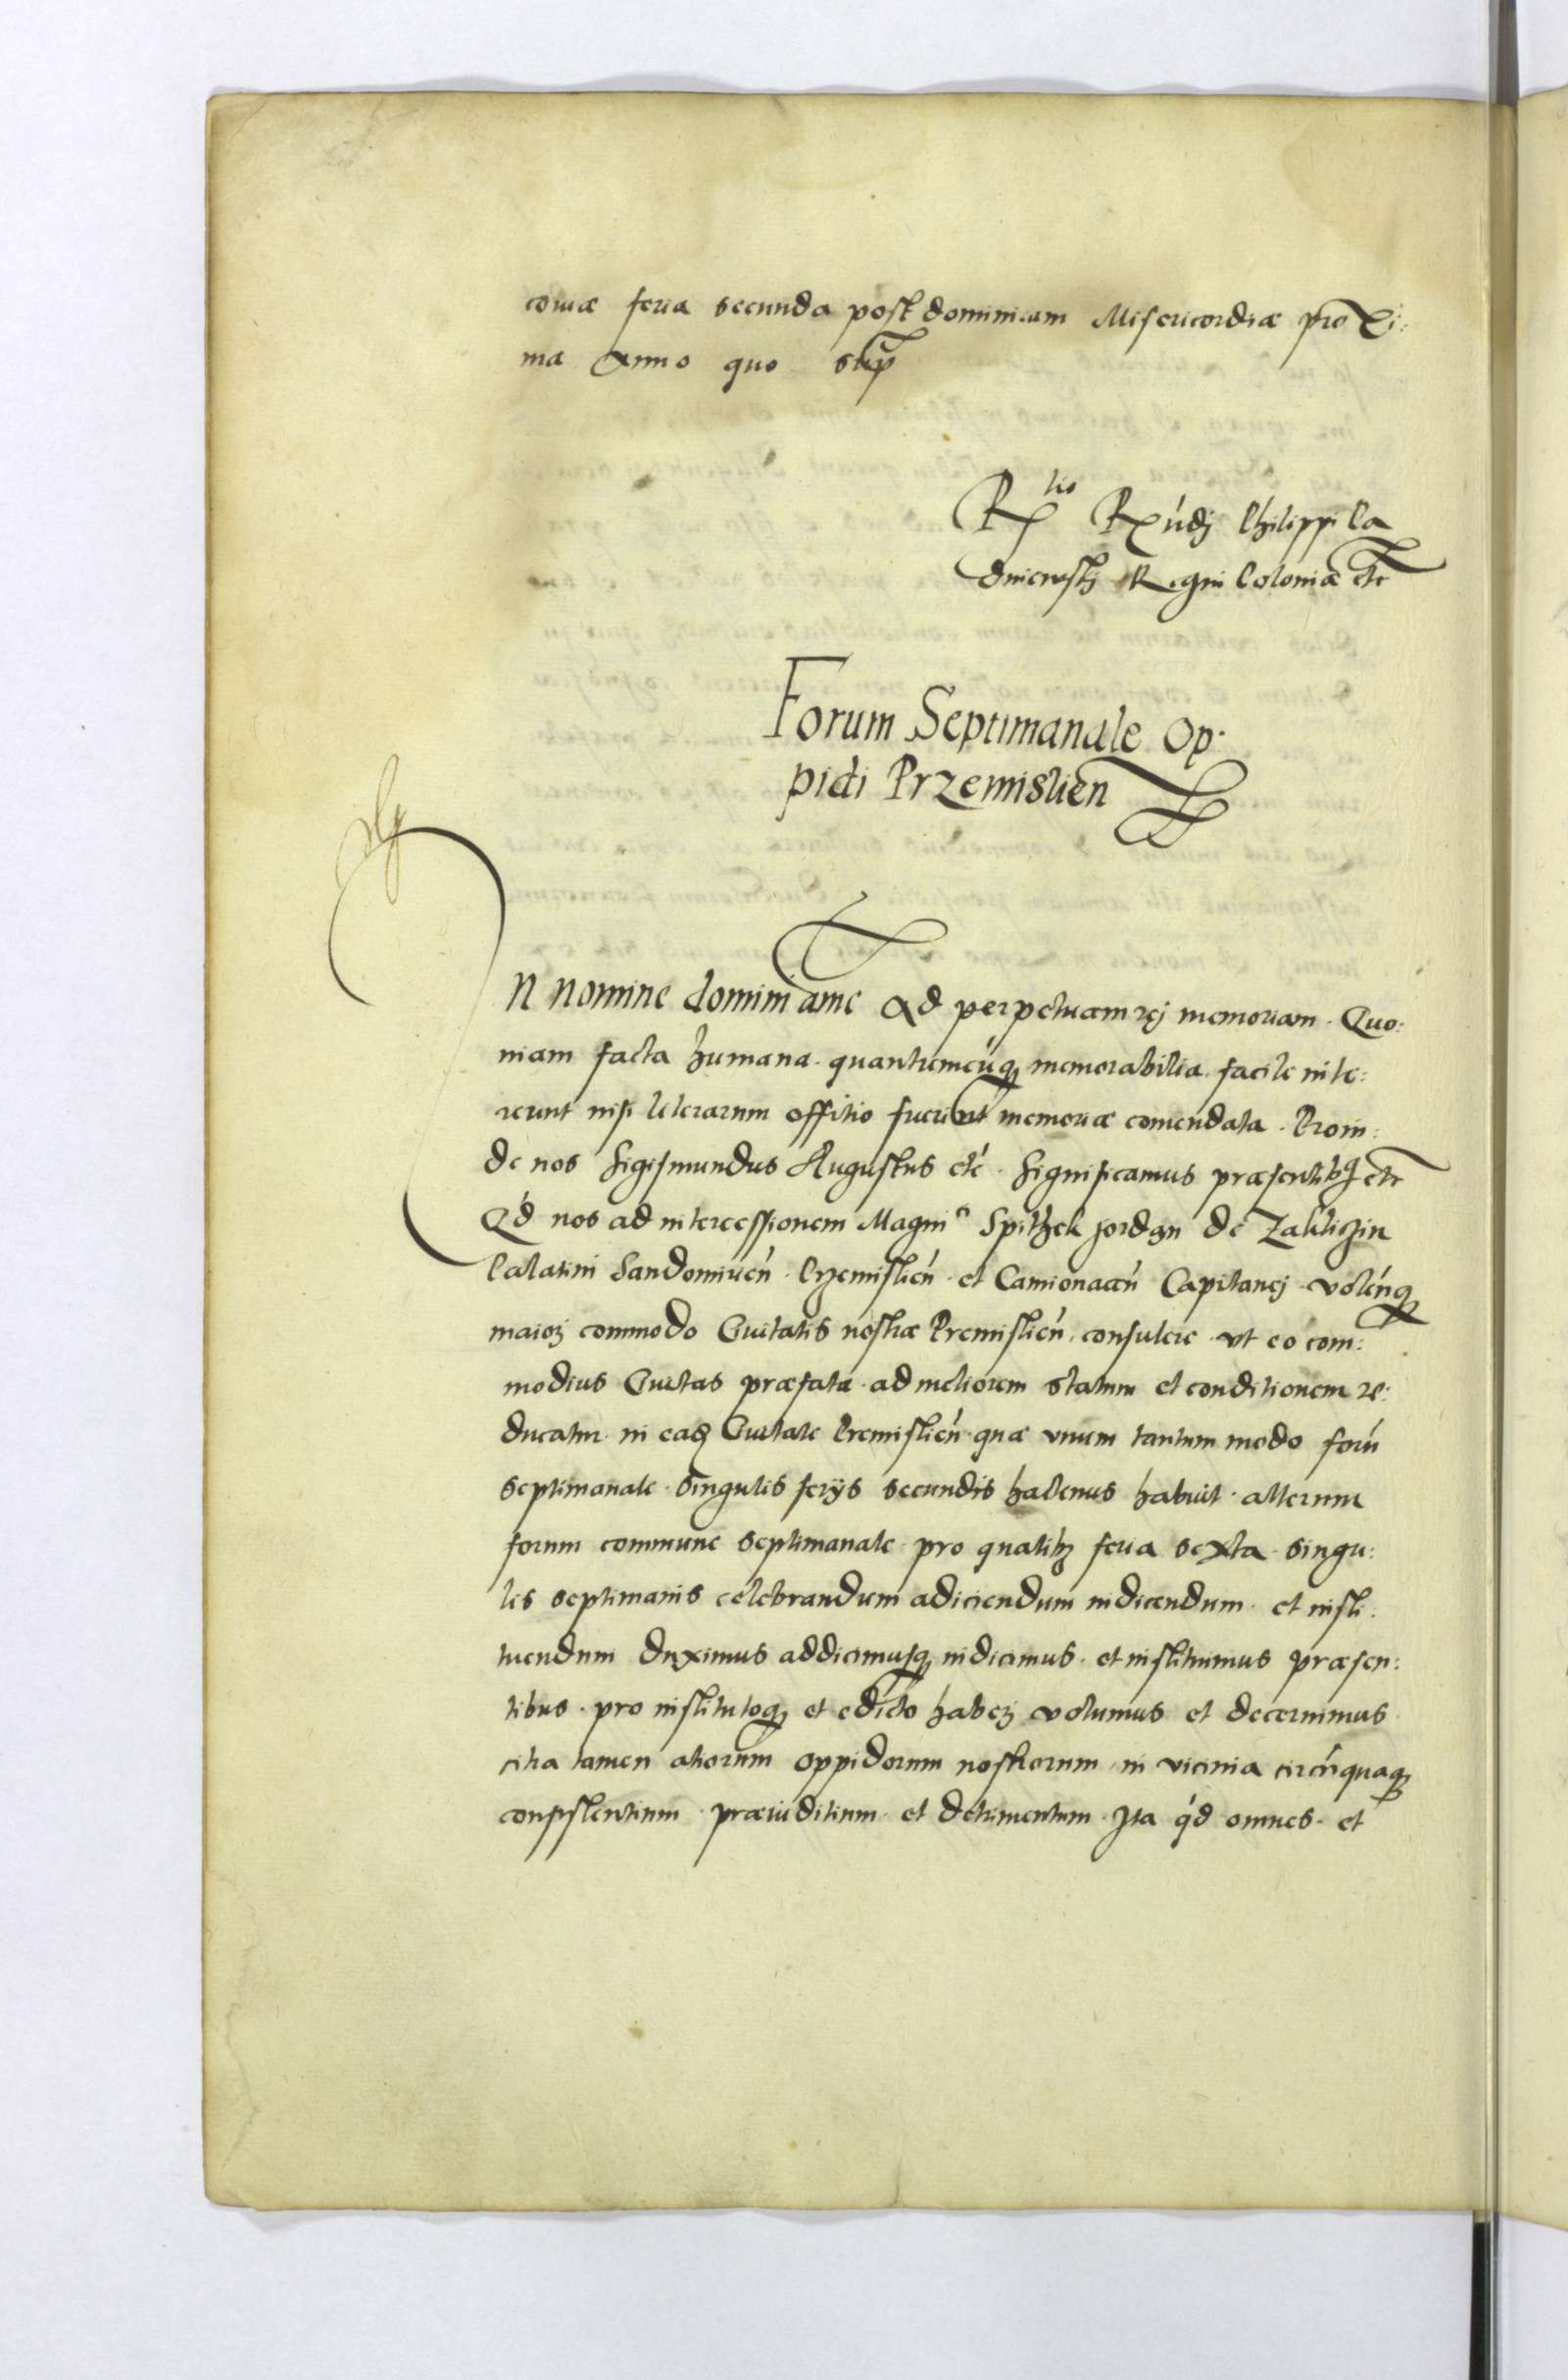 couiæ feria secunda post dominicam Misericordiæ proxi:
ma Anno quo sup̃
Rtio Rūdj Philippi Pa
dnieuskj Regni Poloniæ etc
Forum Septimanale Op:
pidi Przemislien
In nomine domini ame Ad perpetuam rej memoriam. Quo:
niam facta humana quantumcūq3 memorabilia facile inte:
reunt nisi literarum offitio fuerint memoriæ comendata. Proin:
de nos Sigismundus Augustus etc. Significamus præsentib9 etc
Qd nos ad intercessionem Magnici Spithek Jordan de Zakliczin
Palatini Sandomirien̄ Przemislien̄ et Camionacen̄ Capitanej volen̄q3
maiorj commodo Ciuitatis nostræ Premislien̄ consulere vt eo com:
modius Ciuitas præfata ad meliorem statum et conditionem re:
ducatur in ead3 Ciuitate Premislien̄ quæ vnum tantummodo forū
septimanale singulis ferijs secundis hactenus habuit alterum
forum commune septimanale pro qualib3 feria sexta singu:
lis septimanis celebrandum adiciendum indicendum et insti:
tuendum duximus addicimusq3 indicimus et instituimus præsen:
tibus pro institutoq3 et edicto haberj volumus et decernimus
citra tamen aliorum oppidorum nostrorum in vicinia circūquaq3
consistentium præiuditium et detrimentum. Ita qd omnes et